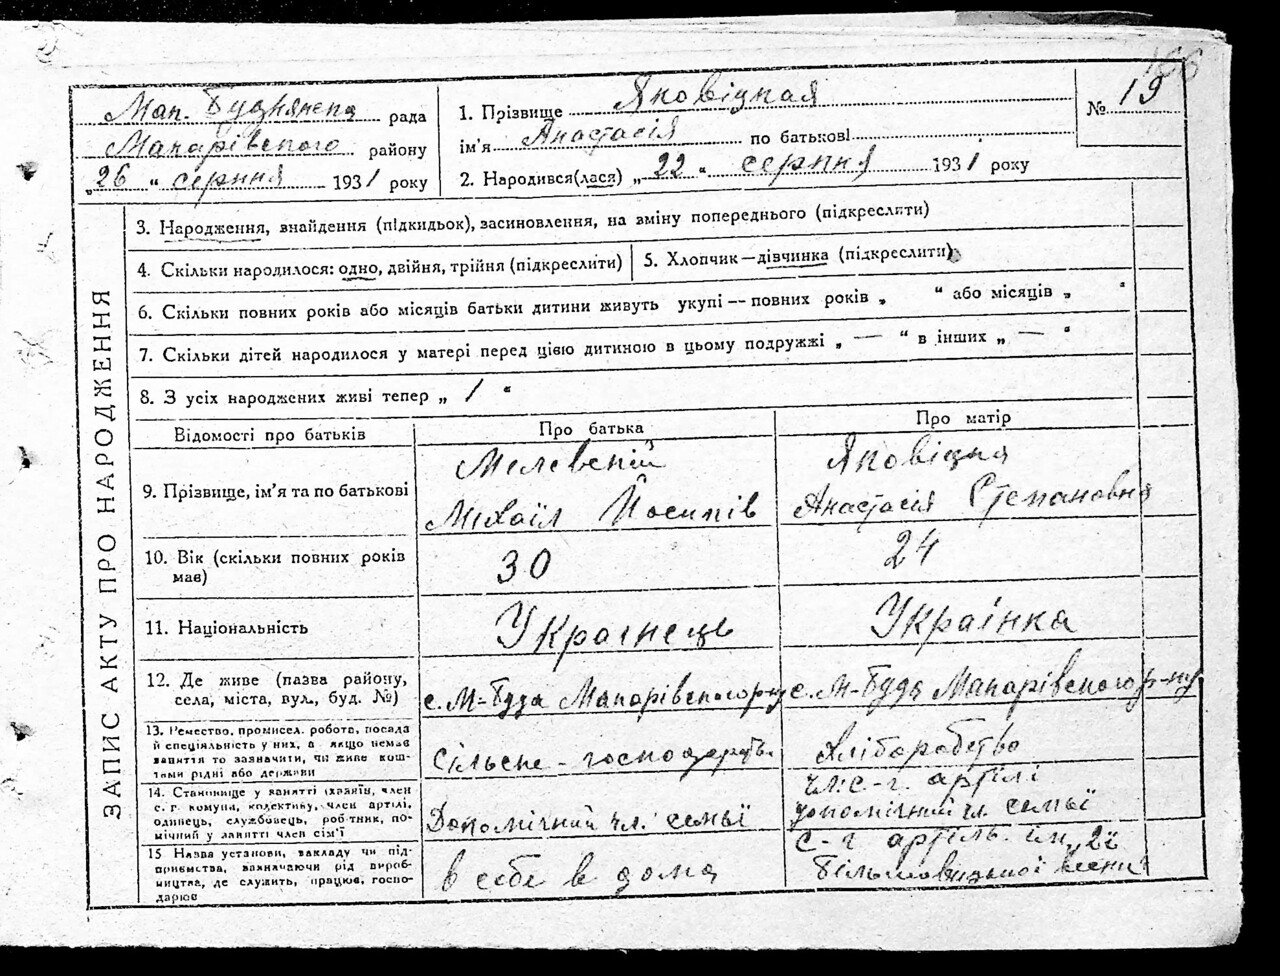 166
Мак. Буднянска рада
Макарівского району
„26 “ серпня 1931 року
1. Прізвище Яковіцкая
ім'я Анастасія по батькові
2. Народився(лася) „ 22 “ серпня 1931 року
№ 19
ЗАПИС АКТУ ПРО НАРОДЖЕННЯ
3. Народження, знайдення (підкидьок), засиновлення, на зміну попереднього (підкреслити)
4. Скільки народилося: одно, двійня, трійня (підкреслити)
5. Хлопчик—дівчинка (підкреслити)
6. Скільки повних років або місяців батьки дитини живуть укупі — повних років „ “ або місяців „ “
7. Скільки дітей народилося у матері перед цією дитиною в цьому подружжі „ — “ в інших „ — “
8. З усіх народжених живі тепер „ 1 “
Відомості про батьків
Про батька
Про матір
9. Прізвище, ім'я та по батькові
Михаїл Йосипів
Яковіцка
Анастасія Степановна
10. Вік (скільки повних років
має)
30
24
11. Національність
Українець
Українка
12. Де живе (назва району,
села, міста, вул., буд. №)
с. М-Буда Макарівского р-ну
с. М-Буда Макарівского р-ну
13. Ремество, промисел. робота, посада
й спеціяльність у них, а якщо немає
заняття то зазначити, чи живе кош-
тами рідні або держави
Сільске-господарств
Хліборобство
14. Становище у занятті (хазяїн, член
с. г. комуни, колективу, член артілі,
одинець, службовець, робітник, по-
мічний у занятті член сім'ї
Допомічний чл. семьї
чл. с-г. артілі
допомічний чл. семьї
15 Назва установи, закладу чи під-
приємства, зазначаючи рід вироб-
ництва, де служить, працює, госпо-
дарює
в себе в дома
с-г артіль ім. 2ї
більшовицької весни